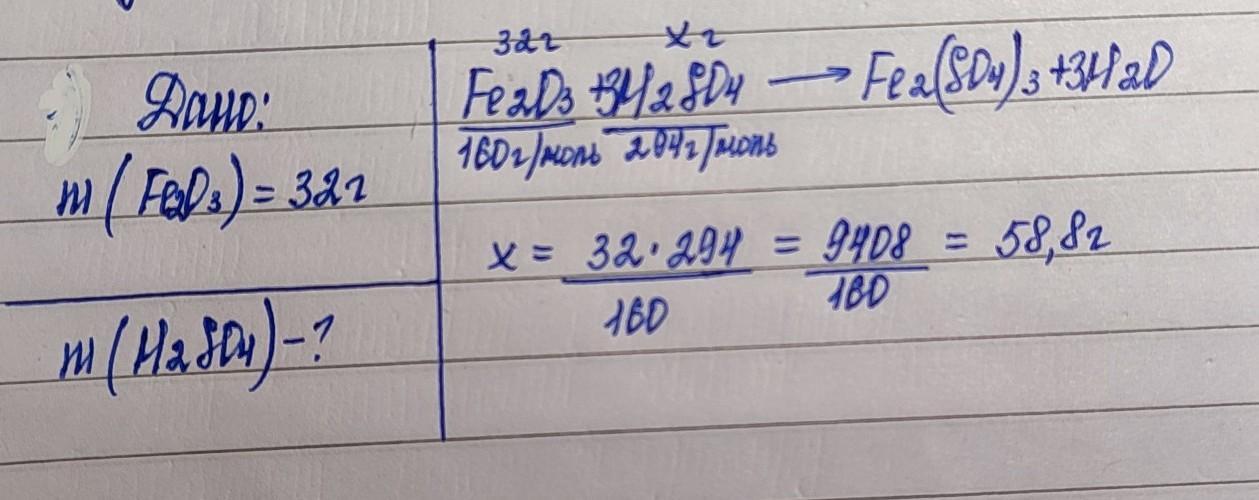 Дано:
m(Fe2O3) = 32г
m(H2SO4) - ?
32г x г
Fe2O3 + 3H2SO4 → Fe2(SO4)3 + 3H2O
160г/моль 294г/моль
x = 32·294/160 = 9408/160 = 58,8г